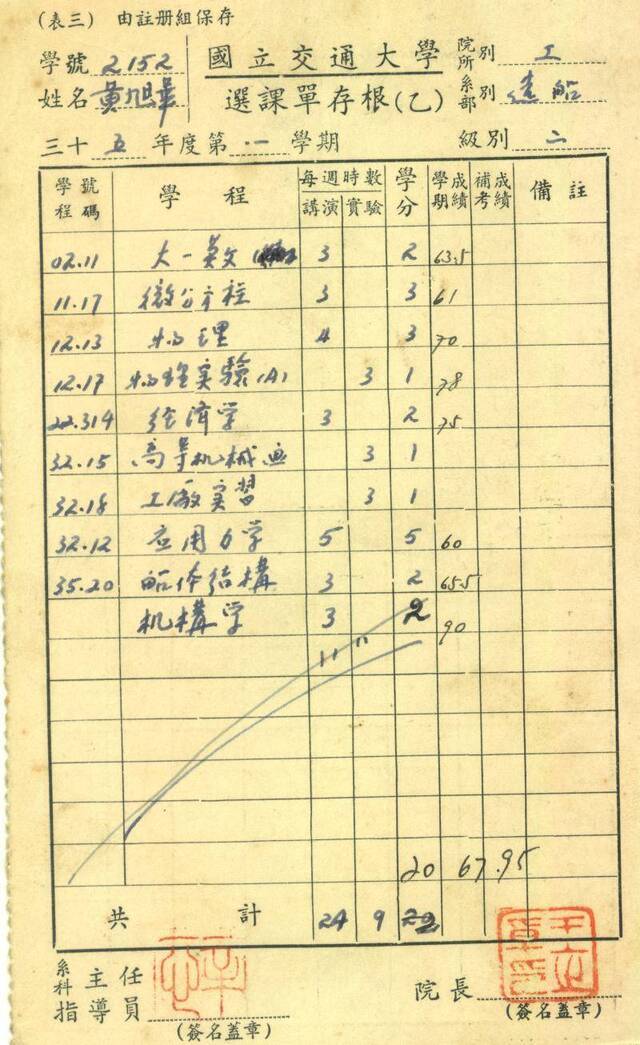 (表三) 由註册組保存
學號 2152 國立交通大學 院所別 工
姓名 黃旭華 選課單存根(乙) 系部別 造船
三十五年度第一學期 級別 二
學程號碼 學程 每週時數 講演 實驗 學分 學期成績 補考成績 備註
02.11 大一英文 3 2 63.5
11.17 微分方程 3 3 61
12.13 物理 4 3 70
12.17 物理实驗(A) 3 1 78
22.314 经濟学 3 2 75
32.15 高等机械画 3 1
32.18 工廠实習 3 1
32.12 应用力学 5 5 60
35.20 船体结構 3 2 65.5
机構学 3 2 90
20 67.95
共計 24 9
系科主任
指導員
(簽名蓋章)
院長
(簽名蓋章)